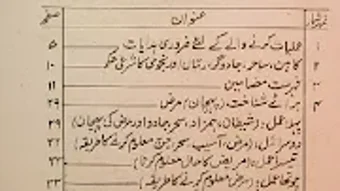 نمبر شمار عنوان صفحہ
۱ عملیات کرنے والے کے لئے ضروری ہدایات ۵
۲ کاہن، ساحر، جادوگر، رمّال اور نجومی کا شرعی حکم ۱۰
۳ فہرست مضامین ۱۱
۴ برائے شناخت (پہچان) مرض ۲۹
پہلا عمل: (شیطان، ہمزاد، سحر جادو اور مرض کی پہچان) ۲۹
دوسرا عمل: (مرض، آسیب، سحر، جن معلوم کرنے کا طریقہ) ۳۲
تیسرا عمل: (مریض کا حال معلوم کرنا) ۳۲
چوتھا عمل: (مرض معلوم کرنے کا طریقہ) ۳۳